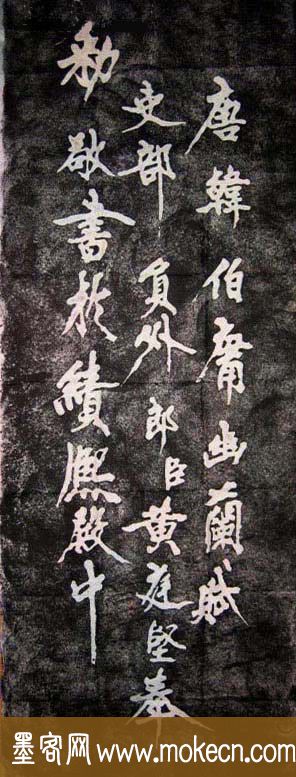 唐韓伯庸幽蘭賦
吏部員外郎臣黃庭堅奉
勅敬書於績熙殿中
墨客网 www.mokecn.com